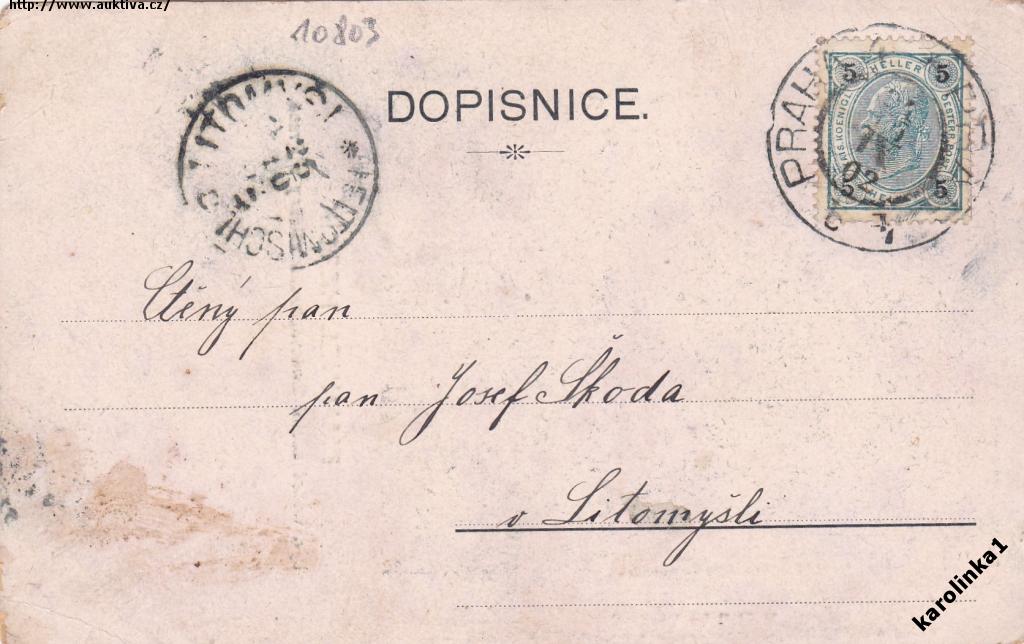 http://www.auktiva.cz/
10803
DOPISNICE.
LITOMYŠL * LEITOMISCHL
PRAHA
02
5 HELLER 5
5 5
Ctěný pan
pan Josef Škoda
v Litomyšli
karolinka1